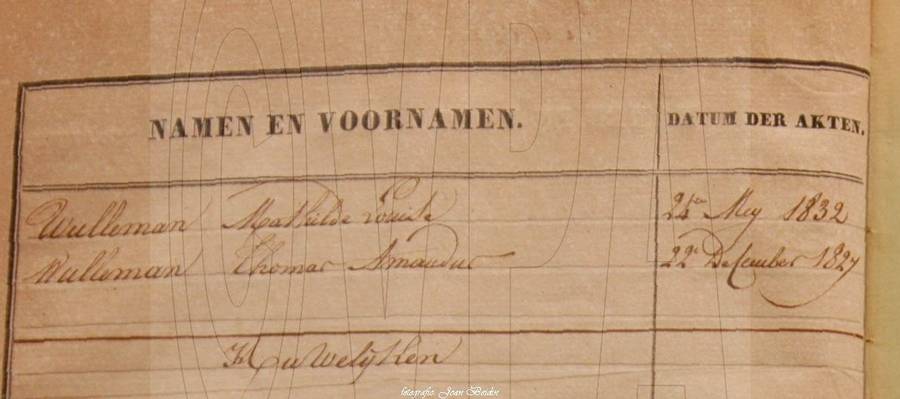 NAMEN EN VOORNAMEN. DATUM DER AKTEN.
Wulleman Mathilde Louise 24en Mey 1832
Wulleman Thomas Amandus 22e December 1827
Huwelijken
fotografie Joan Beidts